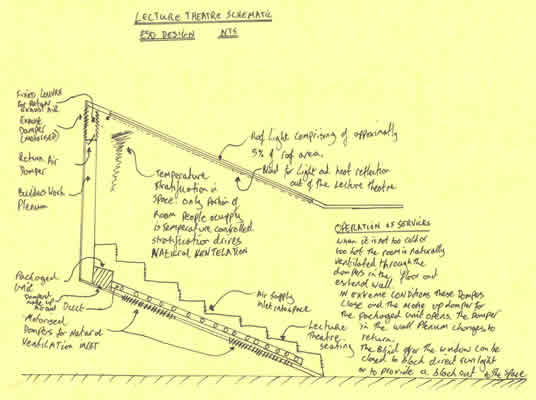 LECTURE THEATRE SCHEMATIC
ESD DESIGN NTS
FIXED LOUVRE
for Return
EXHAUST AIR
EXHAUST
DAMPER
(MOTORISED)
Return Air
Damper
Builders Work
Plenum
Roof Light comprising of approximatly
5% of roof area.
Need for light and heat reflection
out of the Lecture Theatre
Temperature
Stratification in
Space only portion of
Room People occupy
is temperature controlled.
stratification drives
NATURAL VENTILATION
Packaged
Unit
Damper
make up
air and Duct
Motorised
Dampers for Natural
Ventilation INLET
Air Supply
inlet into space
Lecture
Theatre
seating
OPERATION OF SERVICES
when it is not too cold or
too hot the room is naturally
ventilated through the
dampers in the floor and
external wall.
IN extreme conditions these Dampers
Close and the make up damper for
the Packaged unit opens. The Damper
in the wall Plenum changes to
return.
The Blind over the window can be
closed to block direct sunlight
or to provide a block out to the space